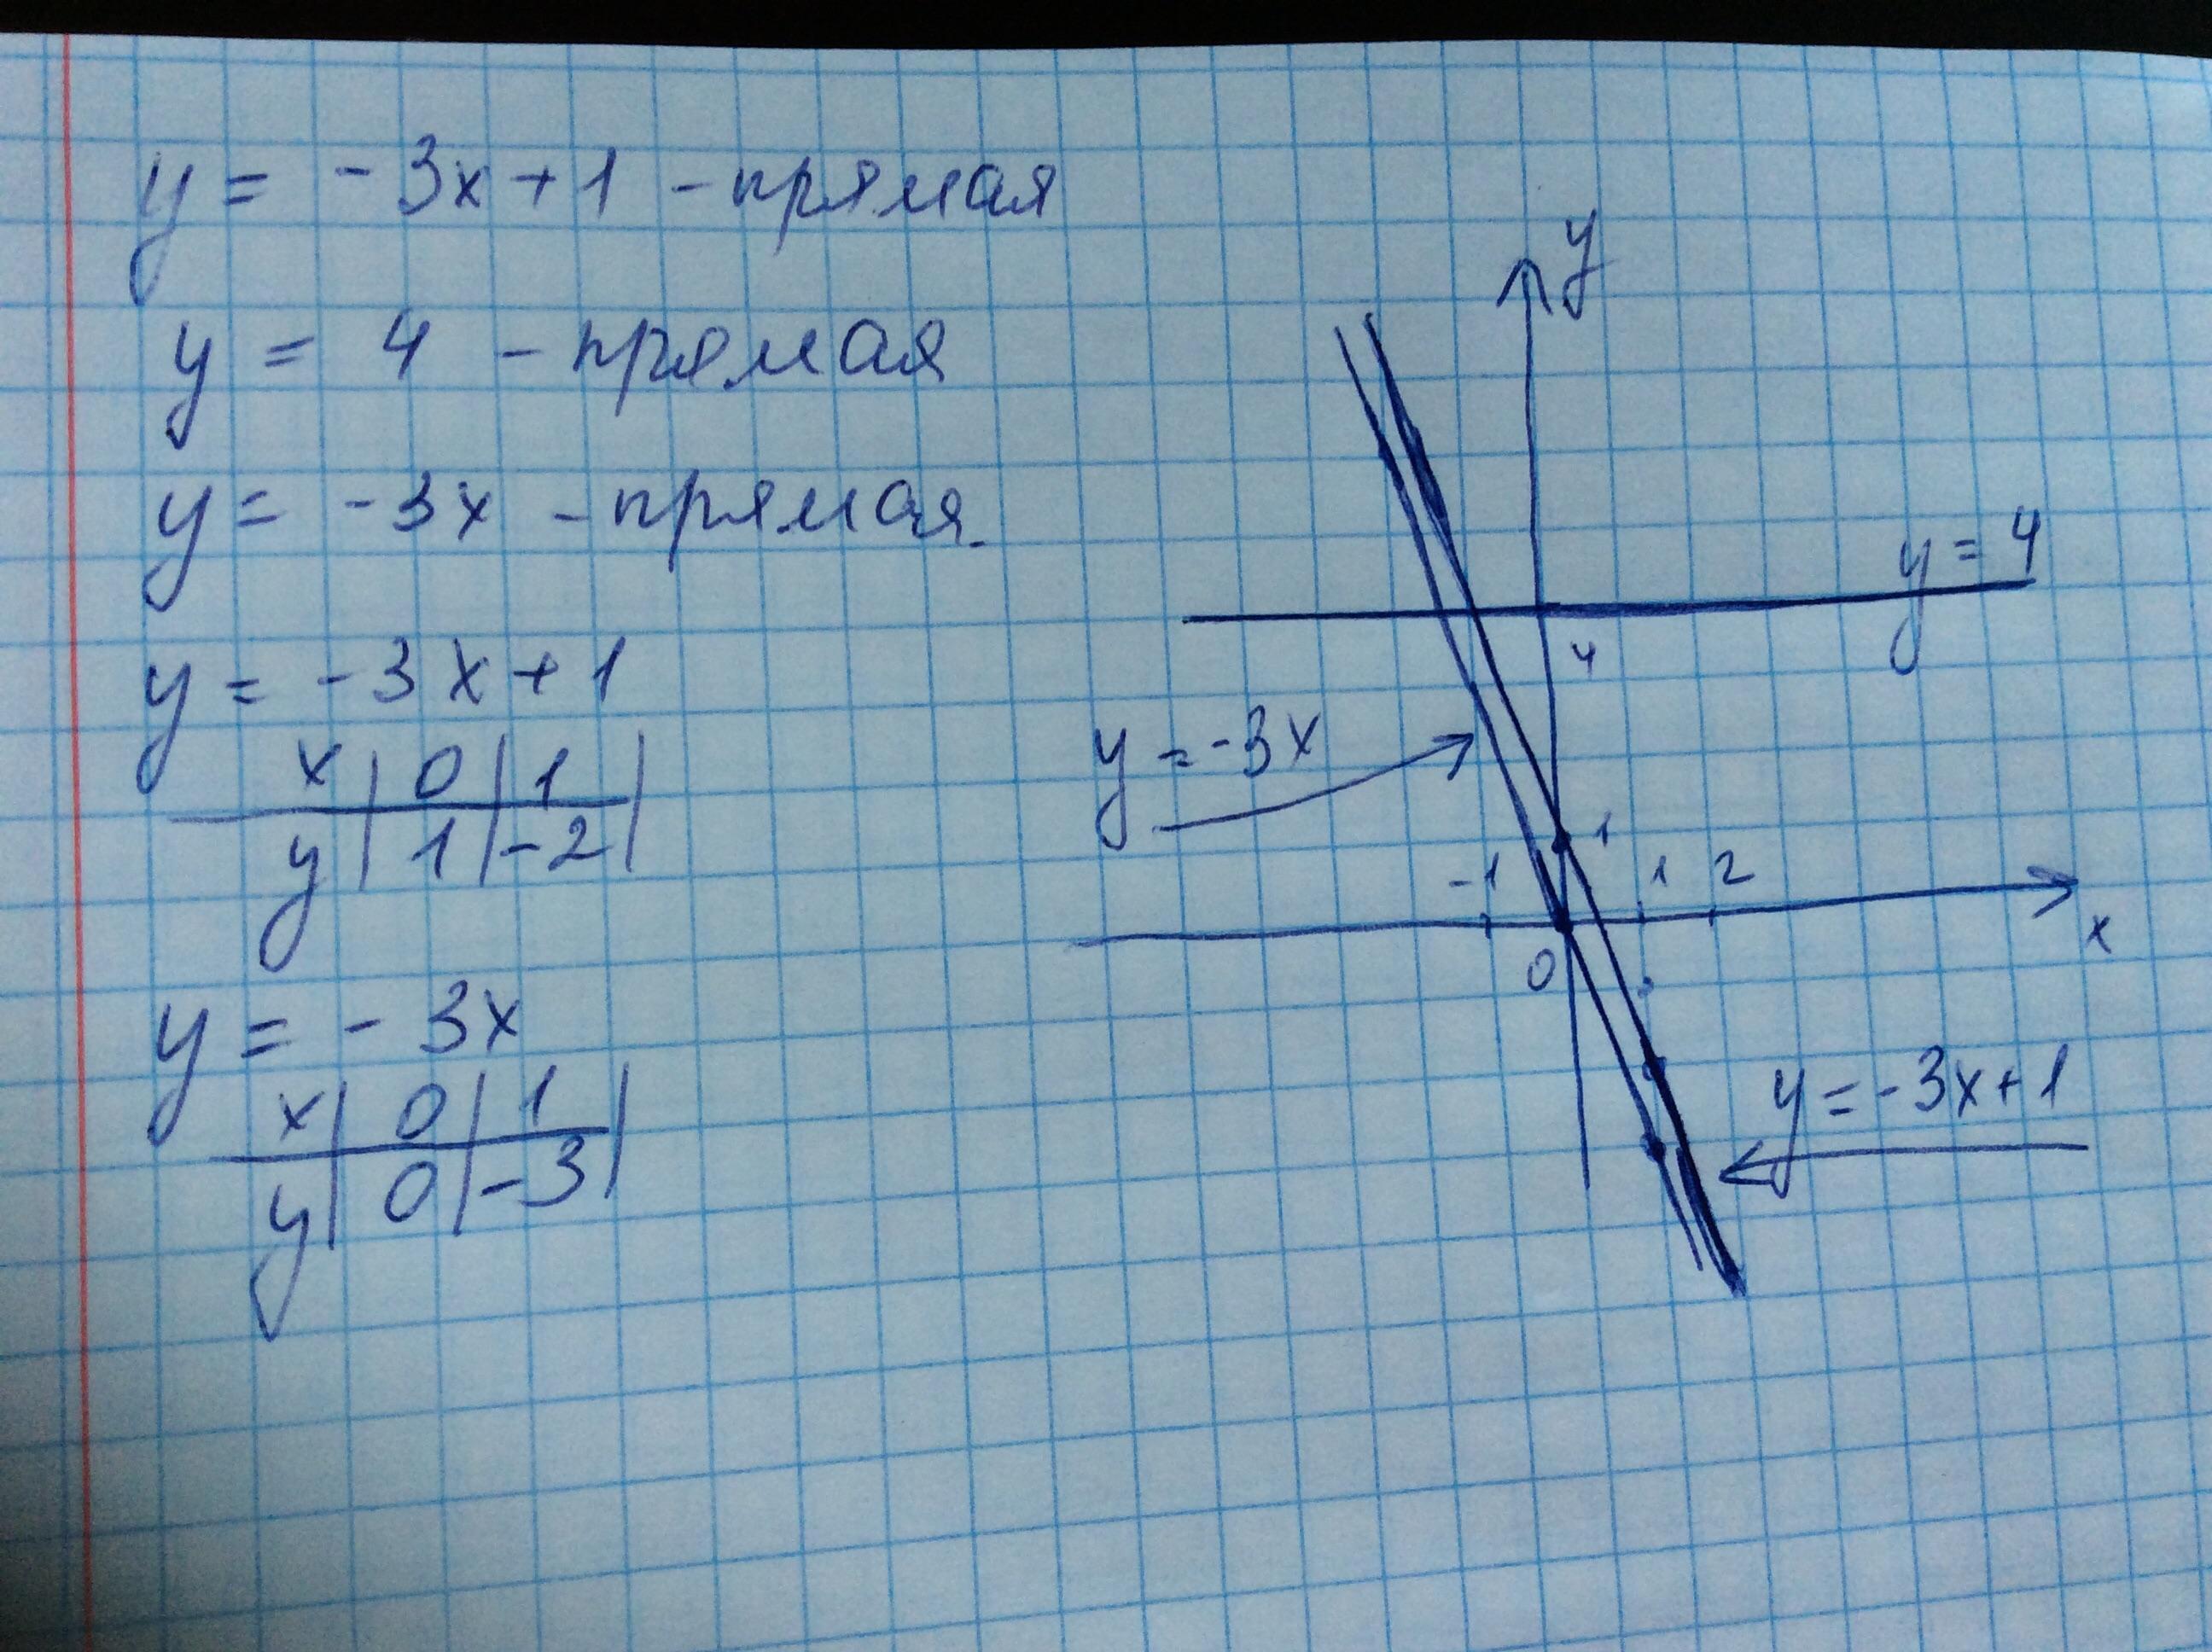 y = -3x + 1 - прямая
y = 4 - прямая
y = -3x - прямая.
y = -3x + 1
x | 0 | 1 |
y | 1 | -2 |
y = -3x
x | 0 | 1 |
y | 0 | -3 |
y
y = 4
4
y = -3x
1
-1 1 2
x
0
y = -3x + 1